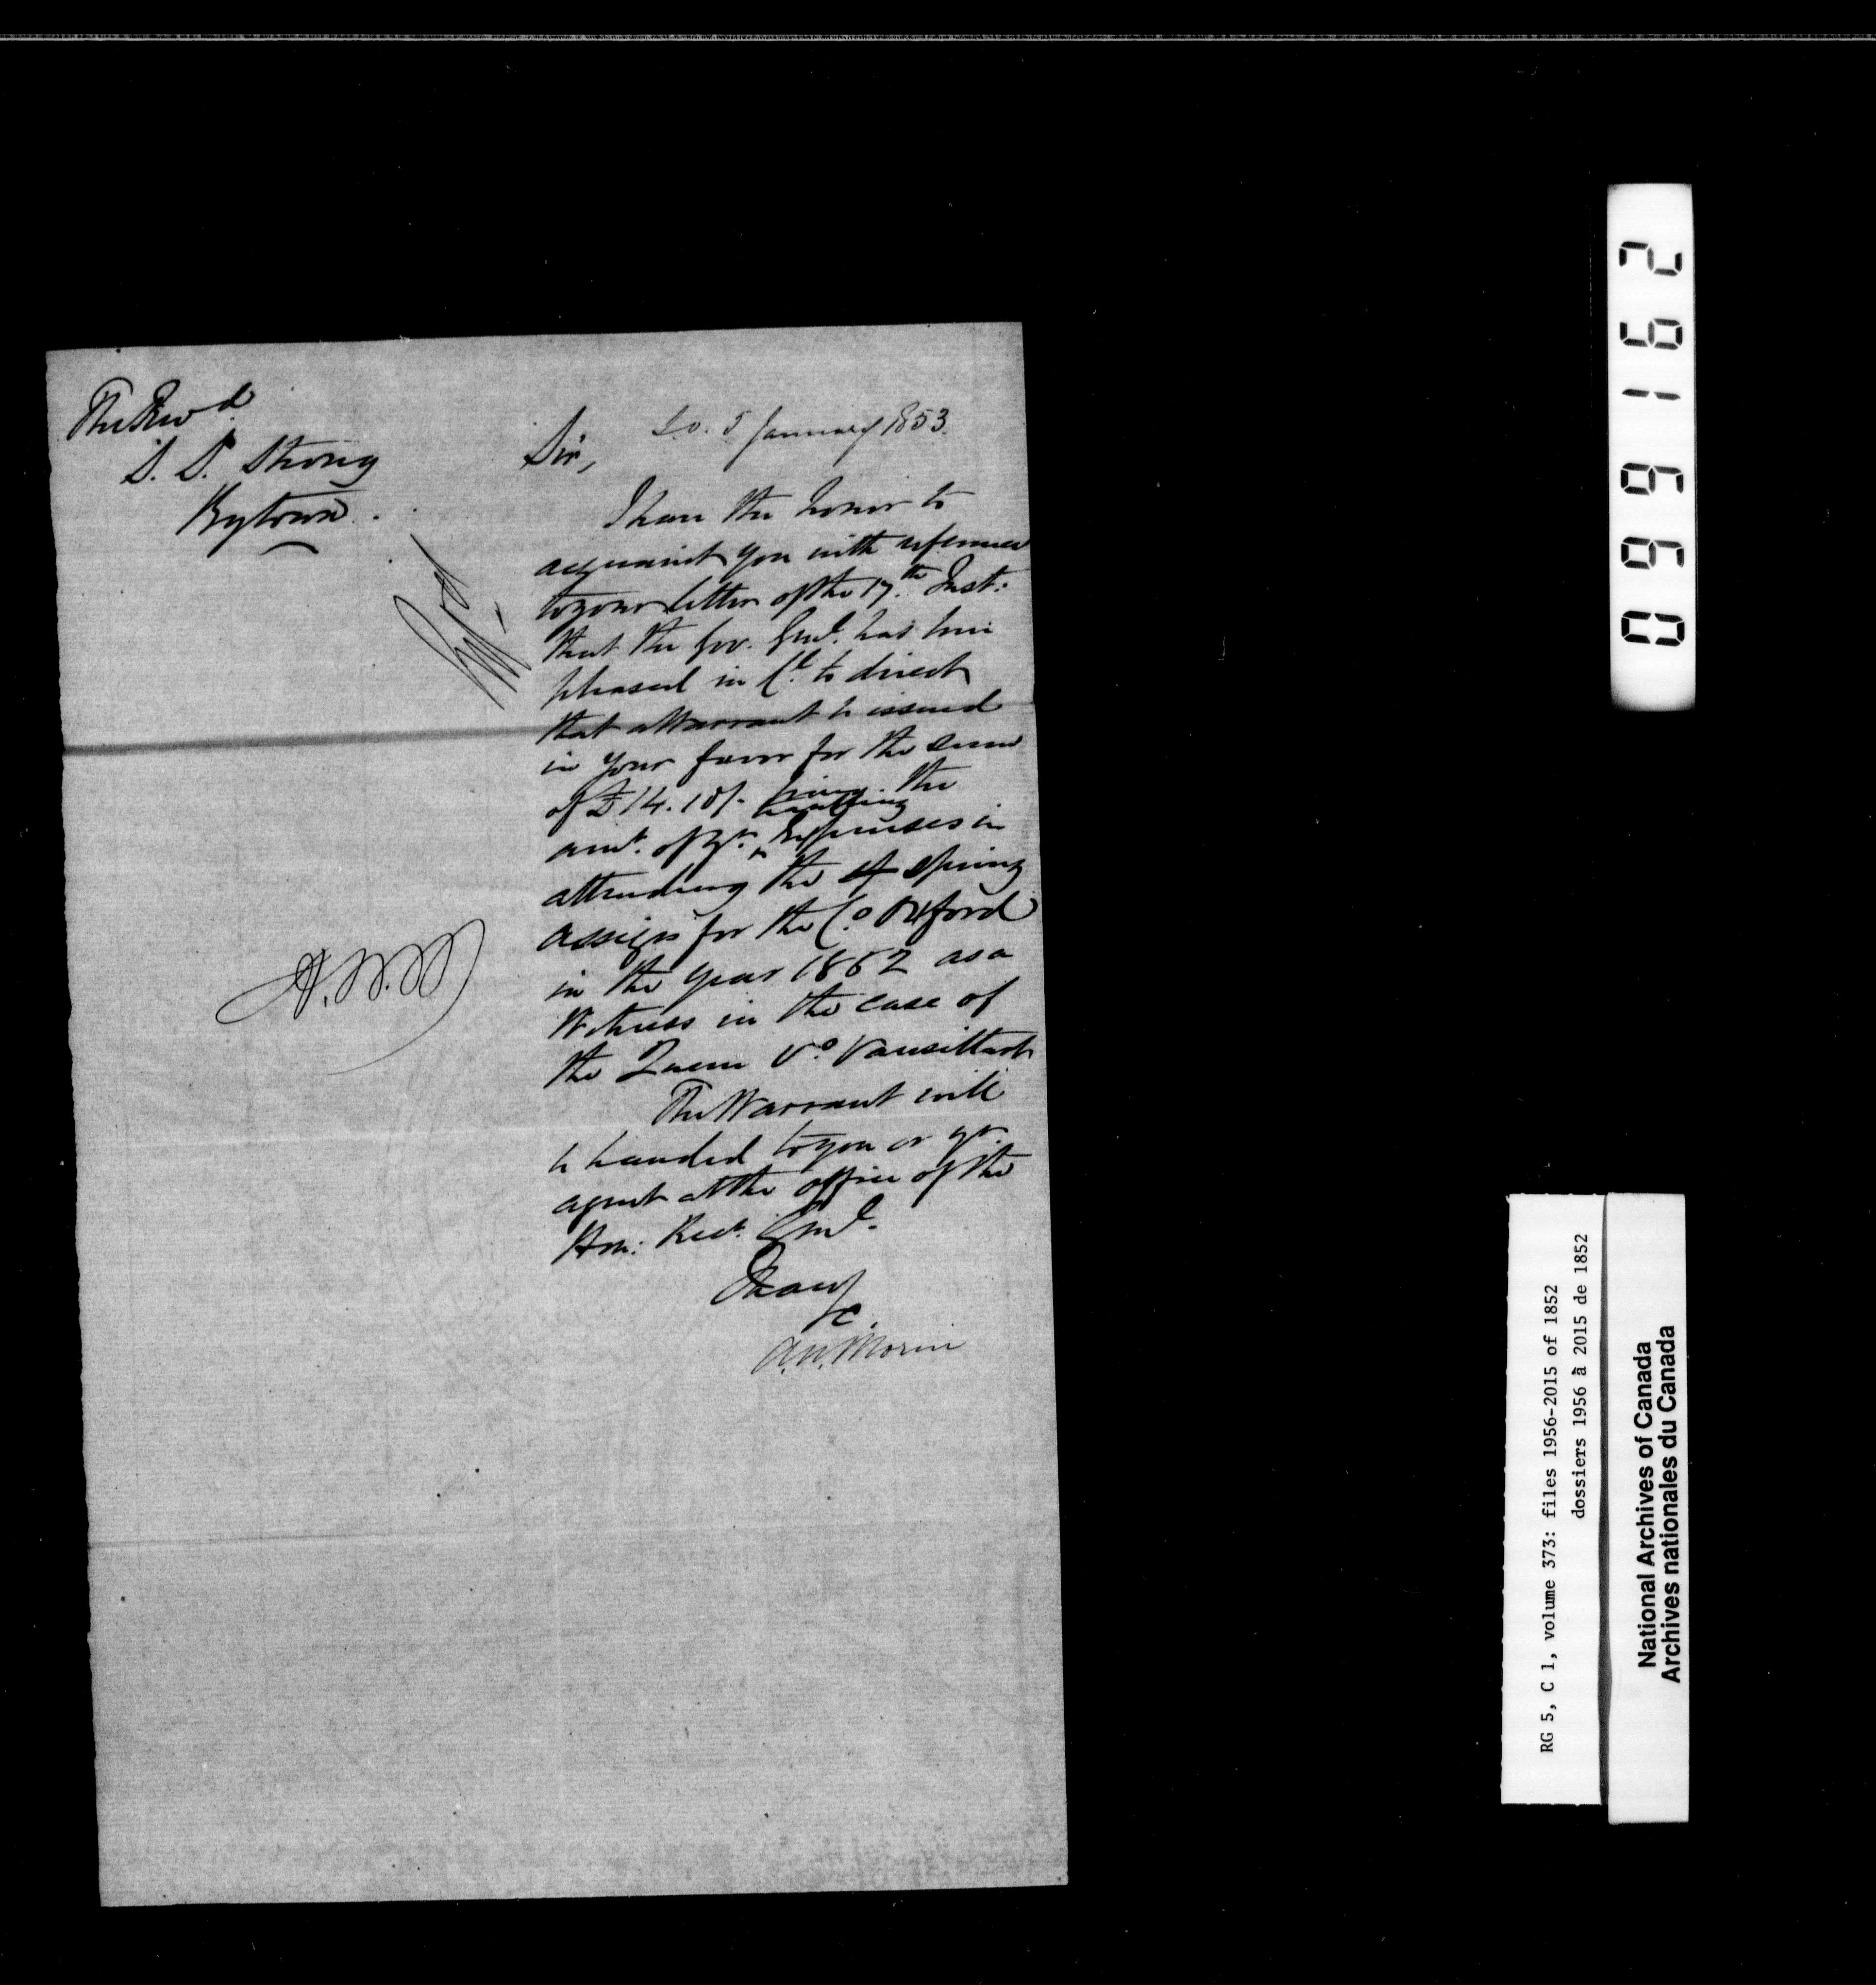 The Revd.
S. S. Strong
Bytown.
S.O. 5 January 1853.
Sir,
I have the honor to
acquaint you with reference
to your letter of the 17th. Inst:
that the Gov. Genl. has been
pleased in Cl. to direct
that a Warrant be issued
in your favor for the sum
of £14.10/- being the
travelling
amt. of yr. Expenses in
attending the spring
assizes for the Co. Oxford
in the year 1852 as a
Witness in the case of
the Queen vs. Vansittart
The Warrant will
be handed to you or yr.
agent at the office of the
Hon: Recr. Genl.
I have
&c.
A.N. Morin
099162
RG 5, C 1, volume 373: files 1956-2015 of 1852
dossiers 1956 à 2015 de 1852
National Archives of Canada
Archives nationales du Canada